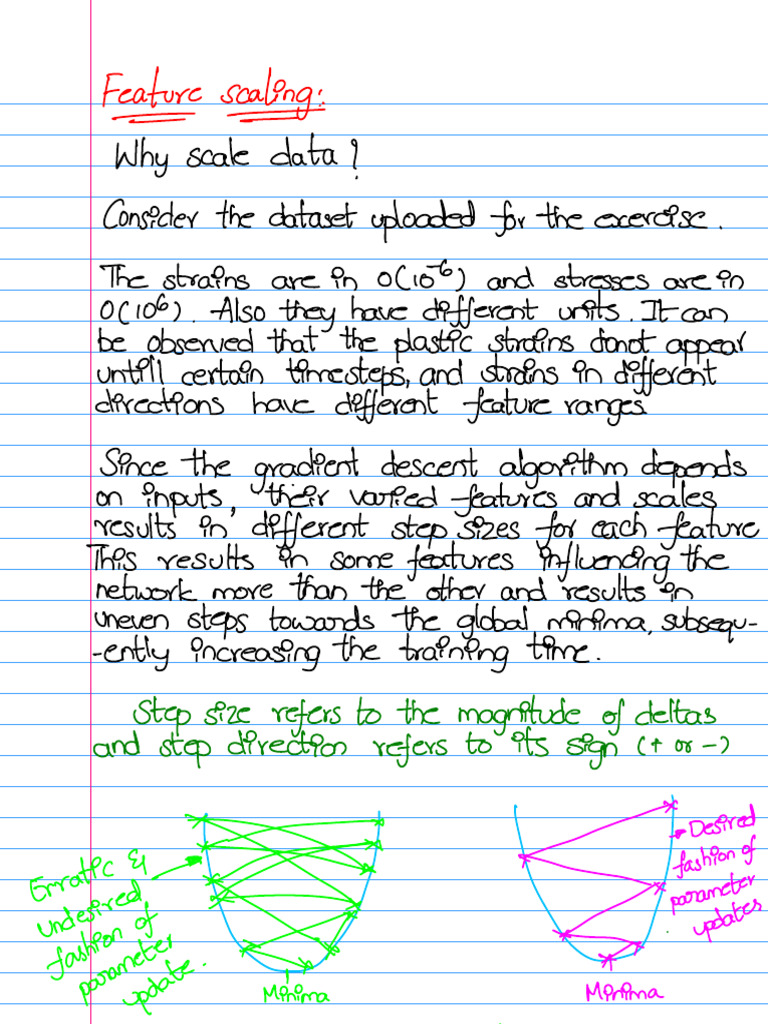 Feature scaling:
Why scale data?
Consider the dataset uploaded for the exercise.
The strains are in O(10⁻⁶) and stresses are in
O(10⁶). Also they have different units. It can
be observed that the plastic strains donot appear
untill certain timesteps, and strains in different
directions have different feature ranges
Since the gradient descent algorithm depends
on inputs, their varied features and scales
results in different step sizes for each feature
This results in some features influencing the
network more than the other and results in
uneven steps towards the global minima, subsequ-
-ently increasing the training time.
Step size refers to the magnitude of deltas
and step direction refers to its sign (+ or -)
Erratic &
undesired
fashion of
parameter
update.
Minima
Desired
fashion of
parameter
updates
Minima